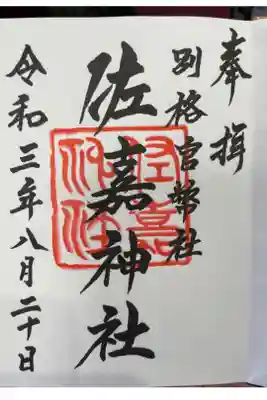 奉拝
別格官幣社
佐嘉神社
令和三年八月二十日
佐嘉神社